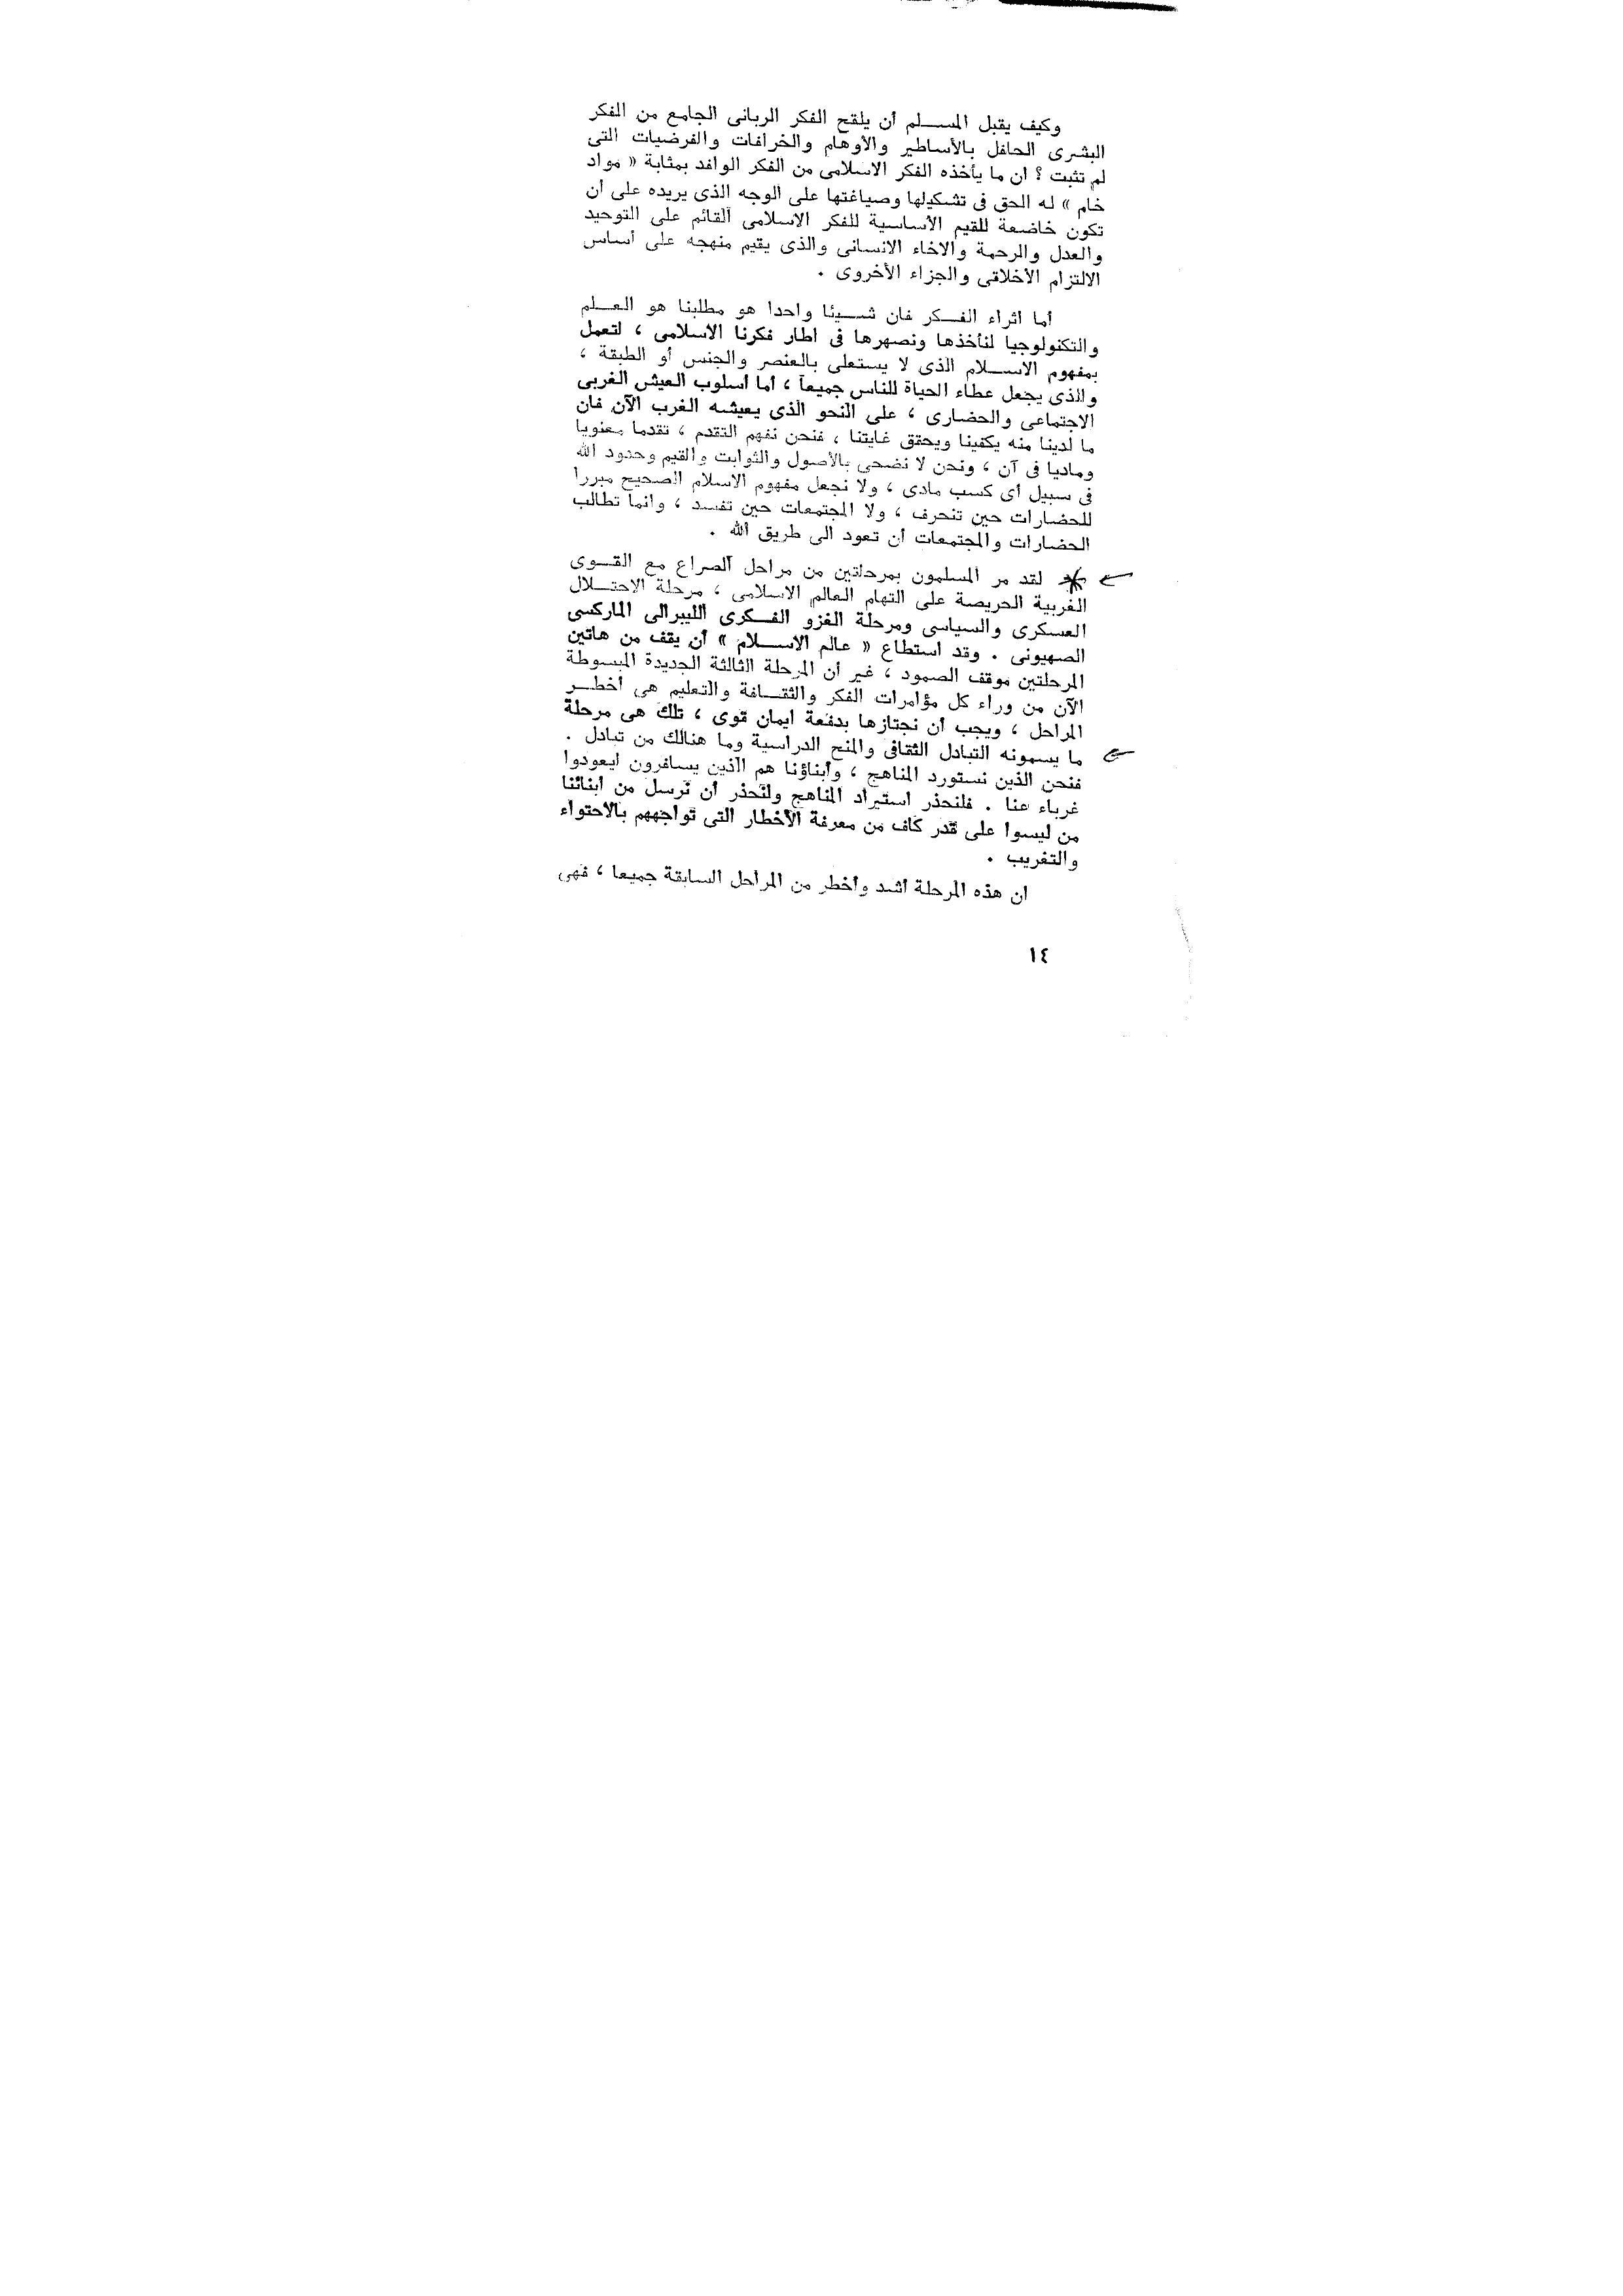 وكيف يقبل المسلم أن يلقح الفكر الربانى الجامع من الفكر
البشرى الحافل بالأساطير والأوهام والخرافات والفرضيات التى
لم تثبت ؟ ان ما يأخذه الفكر الاسلامى من الفكر الوافد بمثابة « مواد
خام » له الحق فى تشكيلها وصياغتها على الوجه الذى يريده على أن
تكون خاضعة للقيم الأساسية للفكر الاسلامى القائم على التوحيد
والعدل والرحمة والاخاء الانسانى والذى يقيم منهجه على أساس
الالتزام الأخلاقى والجزاء الأخروى .
أما اثراء الفكر فان شيئا واحدا هو مطلبنا هو العلم
والتكنولوجيا لنأخذها ونصهرها فى اطار فكرنا الاسلامى ، لتعمل
بمفهوم الاسلام الذى لا يستعلى بالعنصر والجنس أو الطبقة ،
والذى يجعل عطاء الحياة للناس جميعا ، أما أسلوب العيش الغربى
الاجتماعى والحضارى ، على النحو الذى يعيشه الغرب الآن فان
ما لدينا منه يكفينا ويحقق غايتنا ، فنحن نفهم التقدم ، تقدما معنويا
وماديا فى آن ، ونحن لا نضحى بالأصول والثوابت والقيم وحدود الله
فى سبيل أى كسب مادى ، ولا نجعل مفهوم الاسلام الصحيح مبررا
للحضارات حين تنحرف ، ولا المجتمعات حين تفسد ، وانما تطالب
الحضارات والمجتمعات أن تعود الى طريق الله .
* لقد مر المسلمون بمرحلتين من مراحل الصراع مع القوى
الغربية الحريصة على التهام العالم الاسلامى ، مرحلة الاحتلال
العسكرى والسياسى ومرحلة الغزو الفكرى الليبرالى الماركسى
الصهيونى . وقد استطاع « عالم الاسلام » أن يقف من هاتين
المرحلتين موقف الصمود ، غير أن المرحلة الثالثة الجديدة المبسوطة
الآن من وراء كل مؤامرات الفكر والثقافة والتعليم هى أخطر
المراحل ، ويجب أن نجتازها بدفعة ايمان قوى ، تلك هى مرحلة
ما يسمونه التبادل الثقافى والمنح الدراسية وما هنالك من تبادل .
فنحن الذين نستورد المناهج ، وأبناؤنا هم الذين يسافرون ليعودوا
غرباء عنا . فلنحذر استيراد المناهج ولنحذر أن نرسل من أبنائنا
من ليسوا على قدر كاف من معرفة الأخطار التى تواجههم بالاحتواء
والتغريب .
ان هذه المرحلة أشد وأخطر من المراحل السابقة جميعا ، فهى
١٤